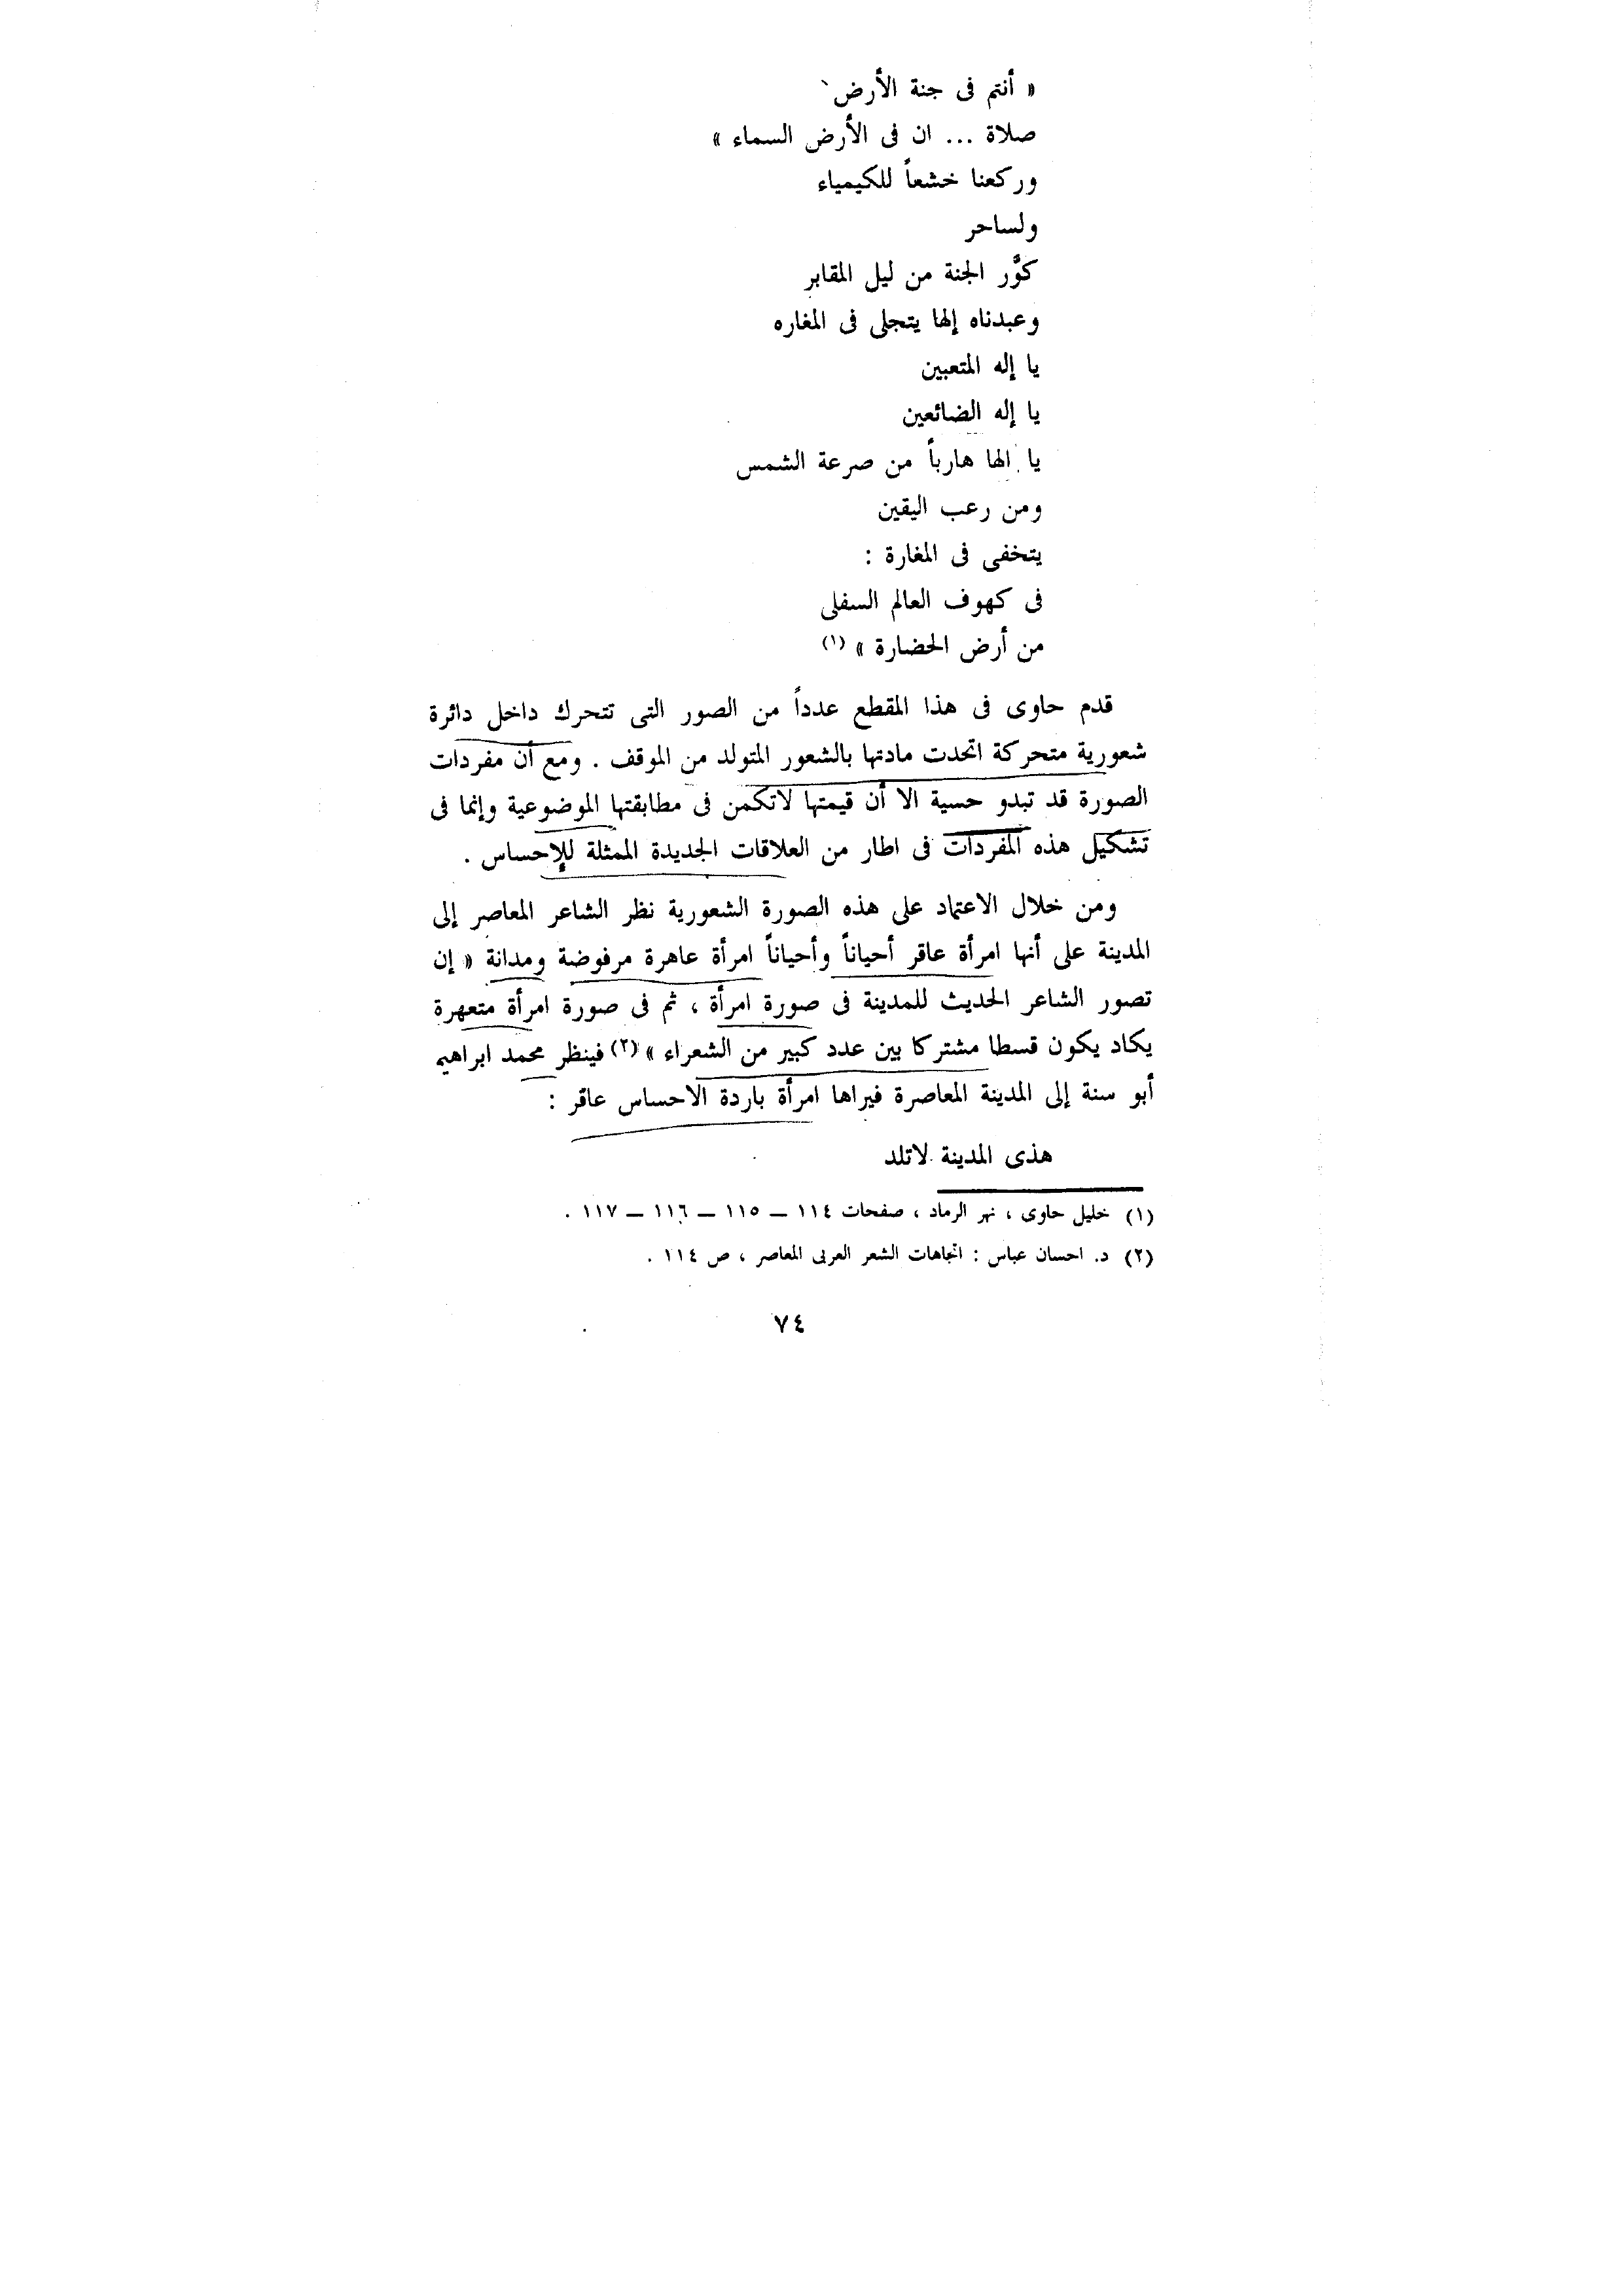 « أنتم فى جنة الأرض
صلاة ... ان فى الأرض السماء »
وركعنا خشعاً للكيمياء
ولساحر
كوَّر الجنة من ليل المقابر
وعبدناه إلها يتجلى فى المغاره
يا إله المتعبين
يا إله الضائعين
يا الها هارباً من صرعة الشمس
ومن رعب اليقين
يتخفى فى المغارة :
فى كهوف العالم السفلى
من أرض الحضارة » (١)
قدم حاوى فى هذا المقطع عدداً من الصور التى تتحرك داخل دائرة
شعورية متحركة اتحدت مادتها بالشعور المتولد من الموقف . ومع أن مفردات
الصورة قد تبدو حسية الا أن قيمتها لاتكمن فى مطابقتها الموضوعية وإنما فى
تشكيل هذه المفردات فى اطار من العلاقات الجديدة الممثلة للإحساس .
ومن خلال الاعتماد على هذه الصورة الشعورية نظر الشاعر المعاصر إلى
المدينة على أنها امرأة عاقر أحياناً وأحياناً امرأة عاهرة مرفوضة ومدانة « إن
تصور الشاعر الحديث للمدينة فى صورة امرأة ، ثم فى صورة امرأة متعهرة
يكاد يكون قسطا مشتركا بين عدد كبير من الشعراء » (٢) فينظر محمد ابراهيم
أبو سنة إلى المدينة المعاصرة فيراها امرأة باردة الاحساس عاقر :
هذى المدينة لاتلد
(١) خليل حاوى ، نهر الرماد ، صفحات ١١٤ – ١١٥ – ١١٦ – ١١٧ .
(٢) د. احسان عباس : اتجاهات الشعر العربى المعاصر ، ص ١١٤ .
٧٤